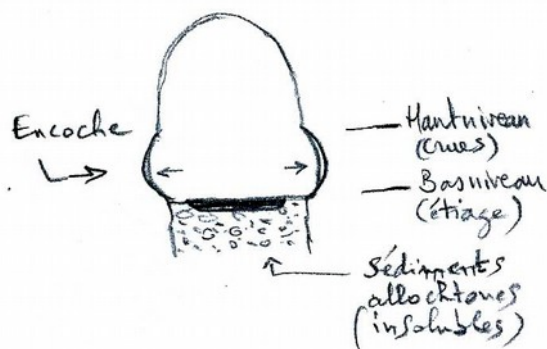 Encoche
Haut niveau
(crues)
Bas niveau
(étiage)
Sédiments
allochtones
(insolubles)